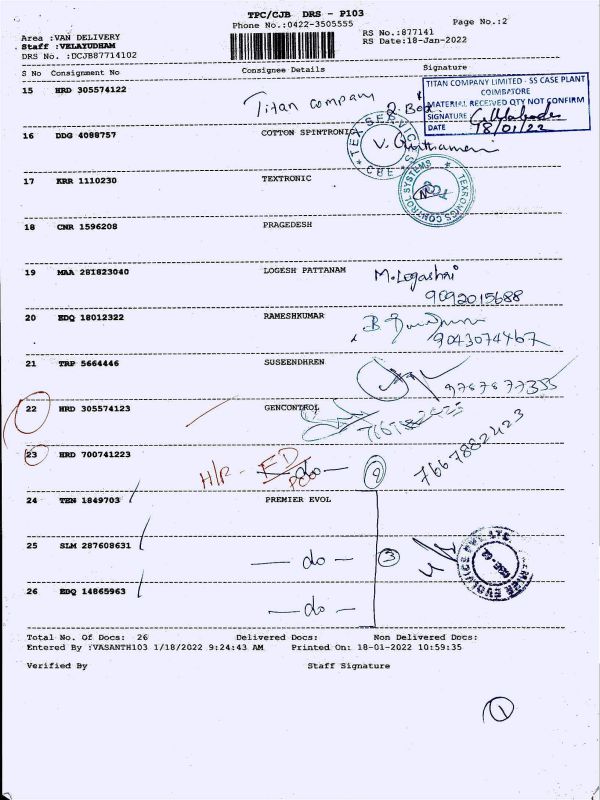 TPC/CJB DRS - P103
Phone No.:0422-3505555
Page No.:2
Area :VAN DELIVERY
RS No.:877141
Staff :VELAYUDHAM
RS Date:18-Jan-2022
DRS No. :DCJB87714102
S No Consignment No Consignee Details Signature
15 HRD 305574122 Titan Company
TITAN COMPANY LIMITED - SS CASE PLANT
COIMBATORE
MATERIAL RECEIVED QTY NOT CONFIRM
SIGNATURE
DATE 18/01/22
16 DDG 4088757 COTTON SPINTRONIC
TEX SERVICES
CBE
17 KRR 1110230 TEXTRONIC
TEXRONICS CONTROL SYSTEMS
18 CNR 1596208 PRAGEDESH
19 MAA 281823040 LOGESH PATTANAM M.Logashri
9092015688
20 EDQ 18012322 RAMESHKUMAR
9043074467
21 TRP 5664446 SUSEENDHREN 9787877355
22 HRD 305574123 GENCONTROL
7667882423
23 HRD 700741223 - do -
H/R - ED
2
24 TEN 1849703 PREMIER EVOL
25 SLM 287608631 - do - 3
26 EDQ 14865963 - do -
Total No. Of Docs: 26 Delivered Docs: Non Delivered Docs:
Entered By :VASANTH103 1/18/2022 9:24:43 AM Printed On: 18-01-2022 10:59:35
Verified By Staff Signature
1